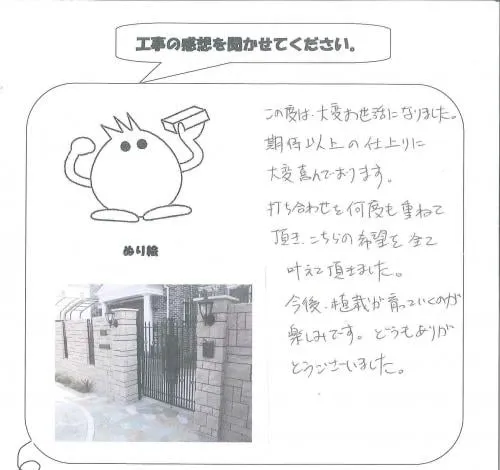 工事の感想を聞かせてください。
この度は、大変お世話になりました。
期待以上の仕上りに
大変喜んでおります。
打ち合わせを何度も重ねて
頂き、こちらの希望を全て
叶えて頂きました。
今後、植栽が育っていくのが
楽しみです。どうもありが
とうございました。
ぬり絵